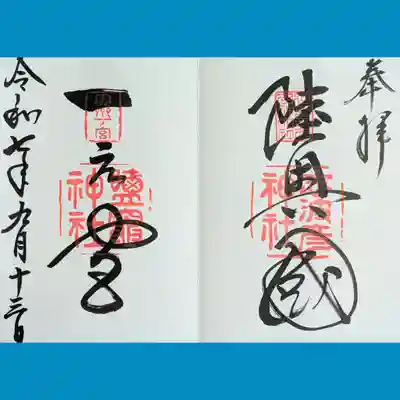 奉拝
陸奥國
志波彦
神社
一之宮
鹽竈
神社
令和七年九月十三日